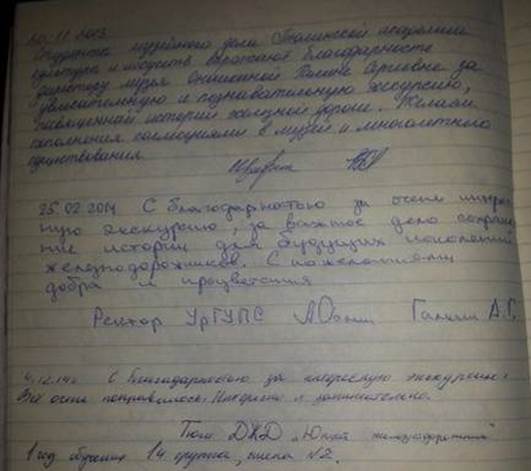 20.11.2013.
Студенты музейного дела Тюменской академии
культуры и искусств выражают благодарность
директору музея Галине Сергеевне за
увлекательную и познавательную экскурсию,
посвященную истории железной дороги. Желаем
пополнения коллекциями в музее и многолетнего
существования
25.02.2014 С благодарностью за очень интерес-
ную экскурсию, за важное дело сохране-
ние истории для будущих поколений
железнодорожников. С пожеланиями
добра и процветания
Ректор УрГУПС Галкин А.Г.
4.12.14г. С благодарностью за интересную экскурсию!
Всё очень понравилось. Интересно и занимательно.
ДЖД "Юный железнодорожник"
1 год обучения 14 группа, школа №2.